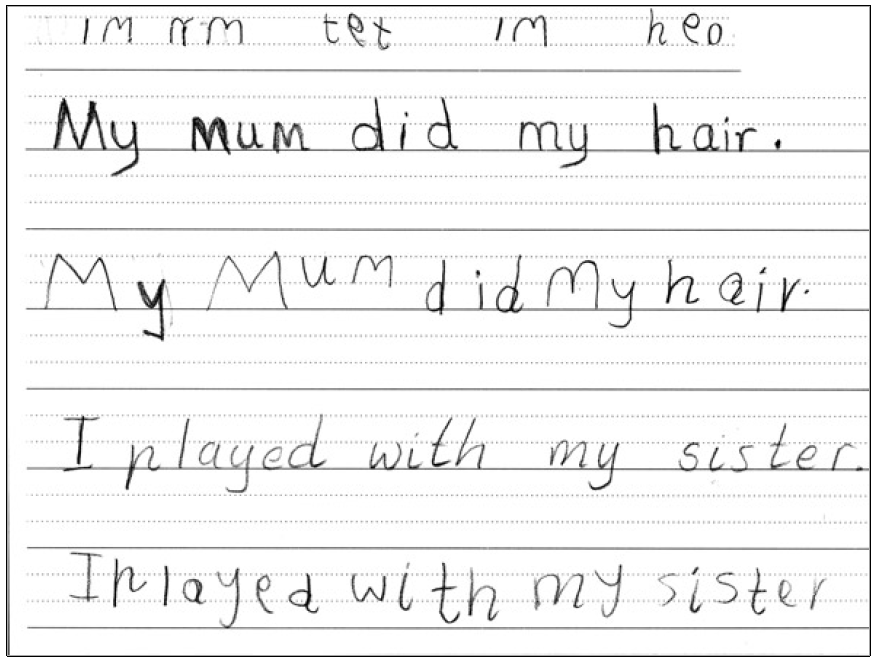 IM mm tet IM heo
My mum did my hair.
My Mum did My hair.
I played with my sister.
I played with my sister